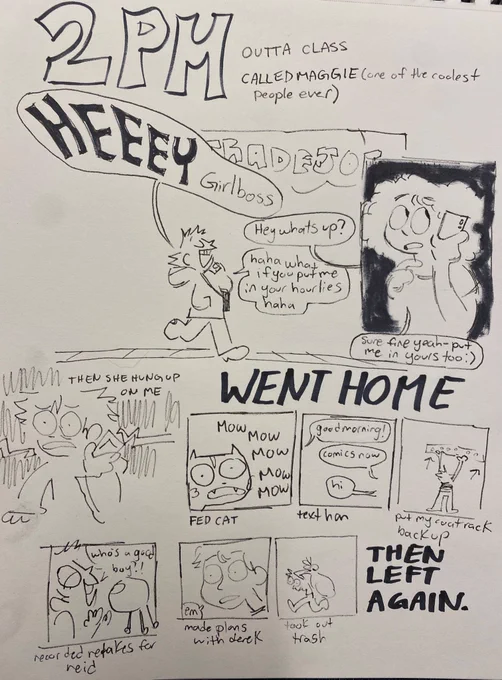 2PM
OUTTA CLASS
CALLED MAGGIE (one of the coolest
people ever)
HEEEY
Girlboss
TRADEJOE
Hey whats up?
haha what
if you put me
in your hourlies
haha
Sure fine yeah-put
me in yours too:)
THEN SHE HUNG UP
ON ME
WENT HOME
MOW
MOW
MOW
MOW
MOW
FED CAT
good morning!
comics now
hi
text han
put my coat rack
back up
who's a good
boy?!
recorded retakes for
reid
em?
made plans
with derek
took out
trash
THEN
LEFT
AGAIN.